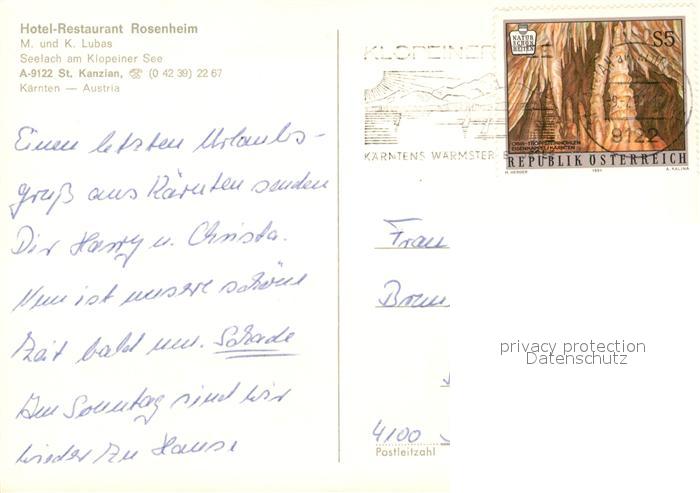 Hotel-Restaurant Rosenheim
M. und K. Lubas
Seelach am Klopeiner See
A-9122 St. Kanzian, ☎ (0 42 39) 22 67
Kärnten — Austria
Einen letzten Urlaubs-
gruß aus Kärnten senden
Dir Harry u. Christa.
Nun ist unsere schöne
Zeit bald um. Schade
Am Sonntag sind wir
wieder zu Hause
KLOPEINER
KÄRNTENS WÄRMSTER
NATUR
SCHÖN
HEITEN
S5
9122
OBIR-TROPFSTEINHÖHLEN
EISENKAPPEL/KÄRNTEN
REPUBLIK ÖSTERREICH
H. HERGER 1991 A. KALINA
Frau
privacy protection
Datenschutz
4100
Postleitzahl